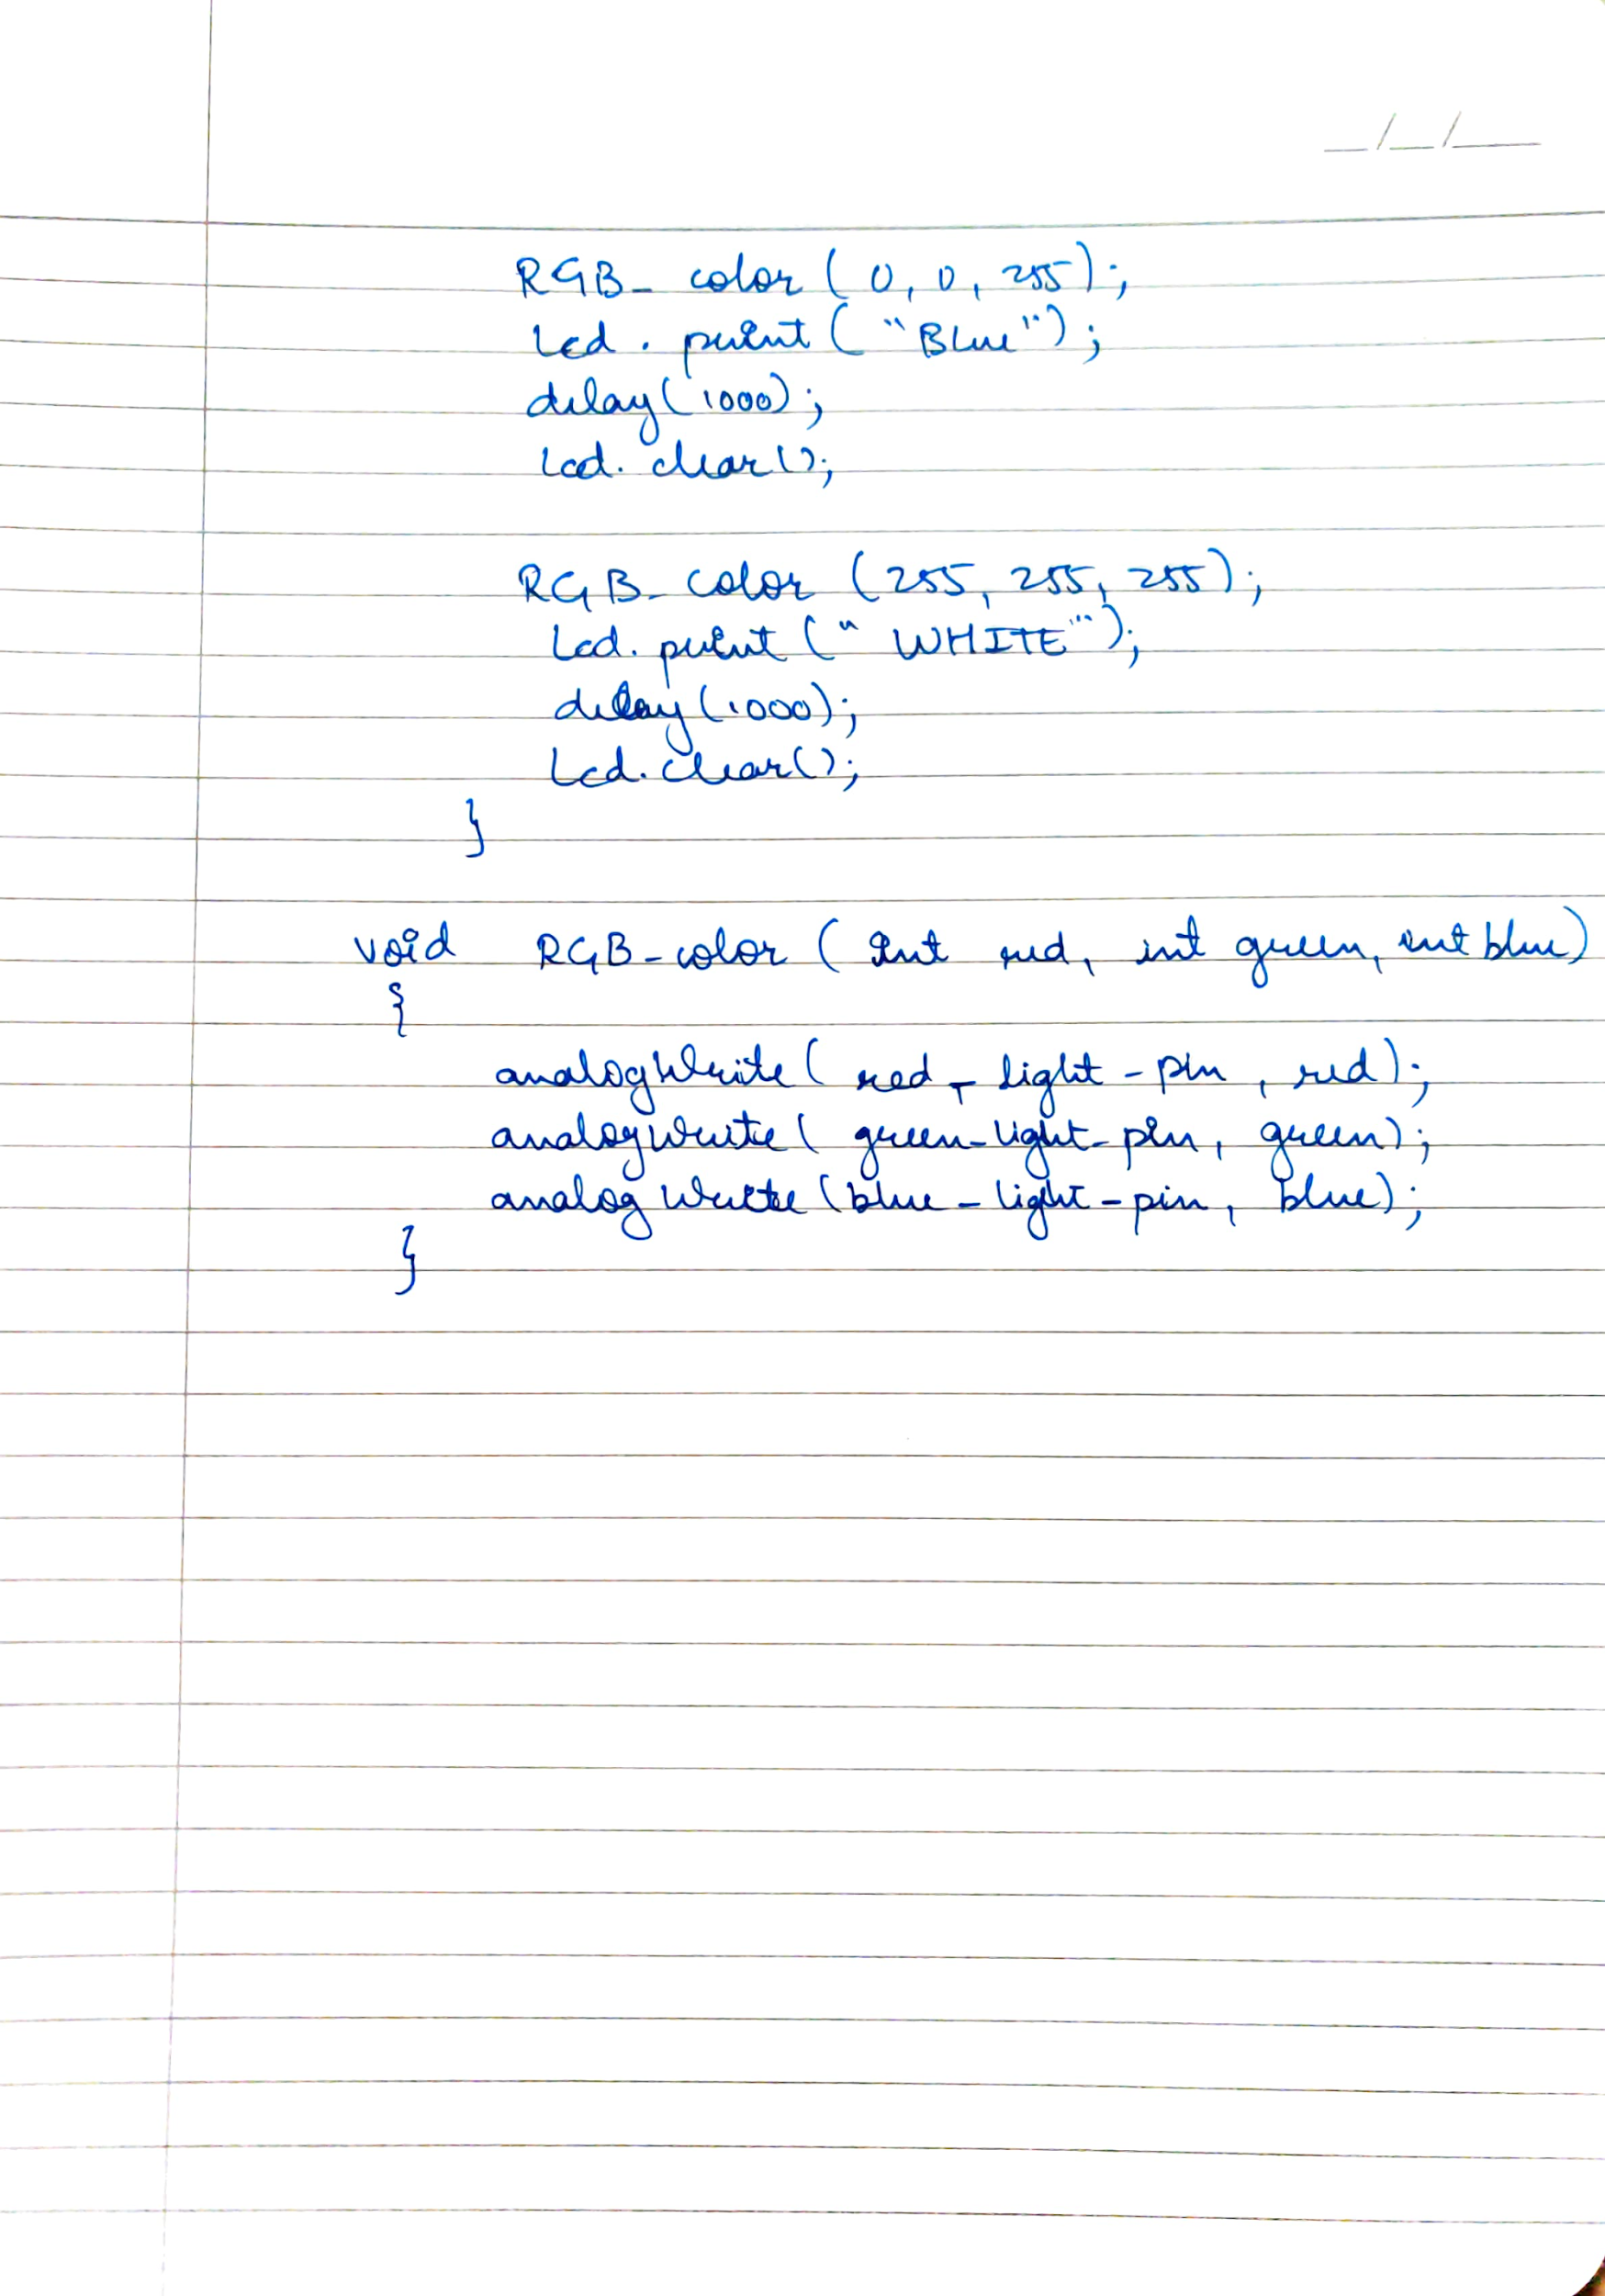 RGB_color (0, 0, 255);
lcd. print ("Blue");
delay(1000);
lcd. clear();
RGB_color (255, 255, 255);
lcd. print (" WHITE");
delay(1000);
lcd.clear();
}
void RGB_color (int red, int green, int blue)
{
analogWrite( red_light_pin, red);
analogWrite( green_light_pin, green);
analogWrite (blue_light_pin, blue);
}